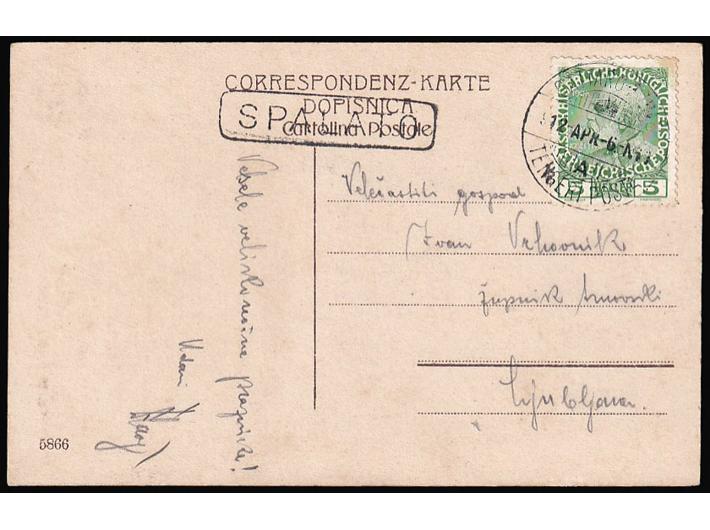 CORRESPONDENZ-KARTE
DOPISNICA
Cartolina Postale
SPALATO
KAISERLICHE KÖNIGLICHE
ÖSTERREICHISCHE POST
5 HELLER 5
12 APR
TENGERI POSTA
Vesele velikonočne praznike!
Udani
Velečastiti gospod
Ivan Vrhovnik
župnik trnovski
Ljubljana.
5866